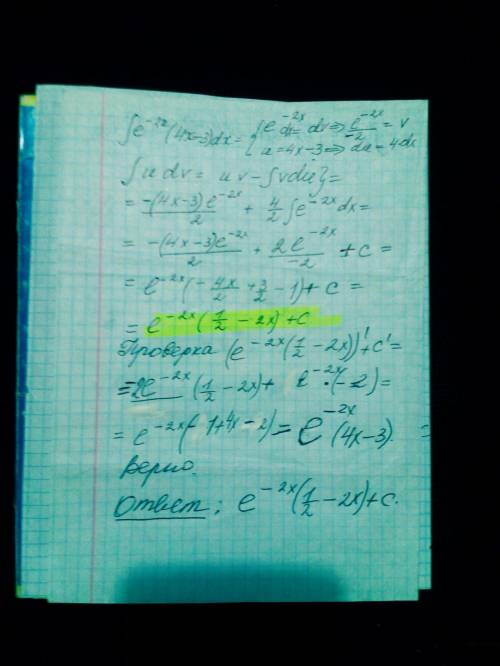 ∫e^{-2x}(4x-3)dx = {e^{-2x}dx = dv ⇒ e^{-2x}/-2 = v
u = 4x-3 ⇒ du = 4dx
∫u dv = uv - ∫v du} =
= -(4x-3)e^{-2x}/2 + 4/2 ∫e^{-2x}dx =
= -(4x-3)e^{-2x}/2 + 2e^{-2x}/-2 + c =
= e^{-2x}(-4x/2 + 3/2 - 1) + c =
= e^{-2x}(1/2 - 2x) + c
Проверка (e^{-2x}(1/2 - 2x))' + c' =
= -2e^{-2x}(1/2 - 2x) + e^{-2x}·(-2) =
= e^{-2x}(-1+4x-2) = e^{-2x}(4x-3). =
Верно.
Ответ: e^{-2x}(1/2 - 2x) + c.